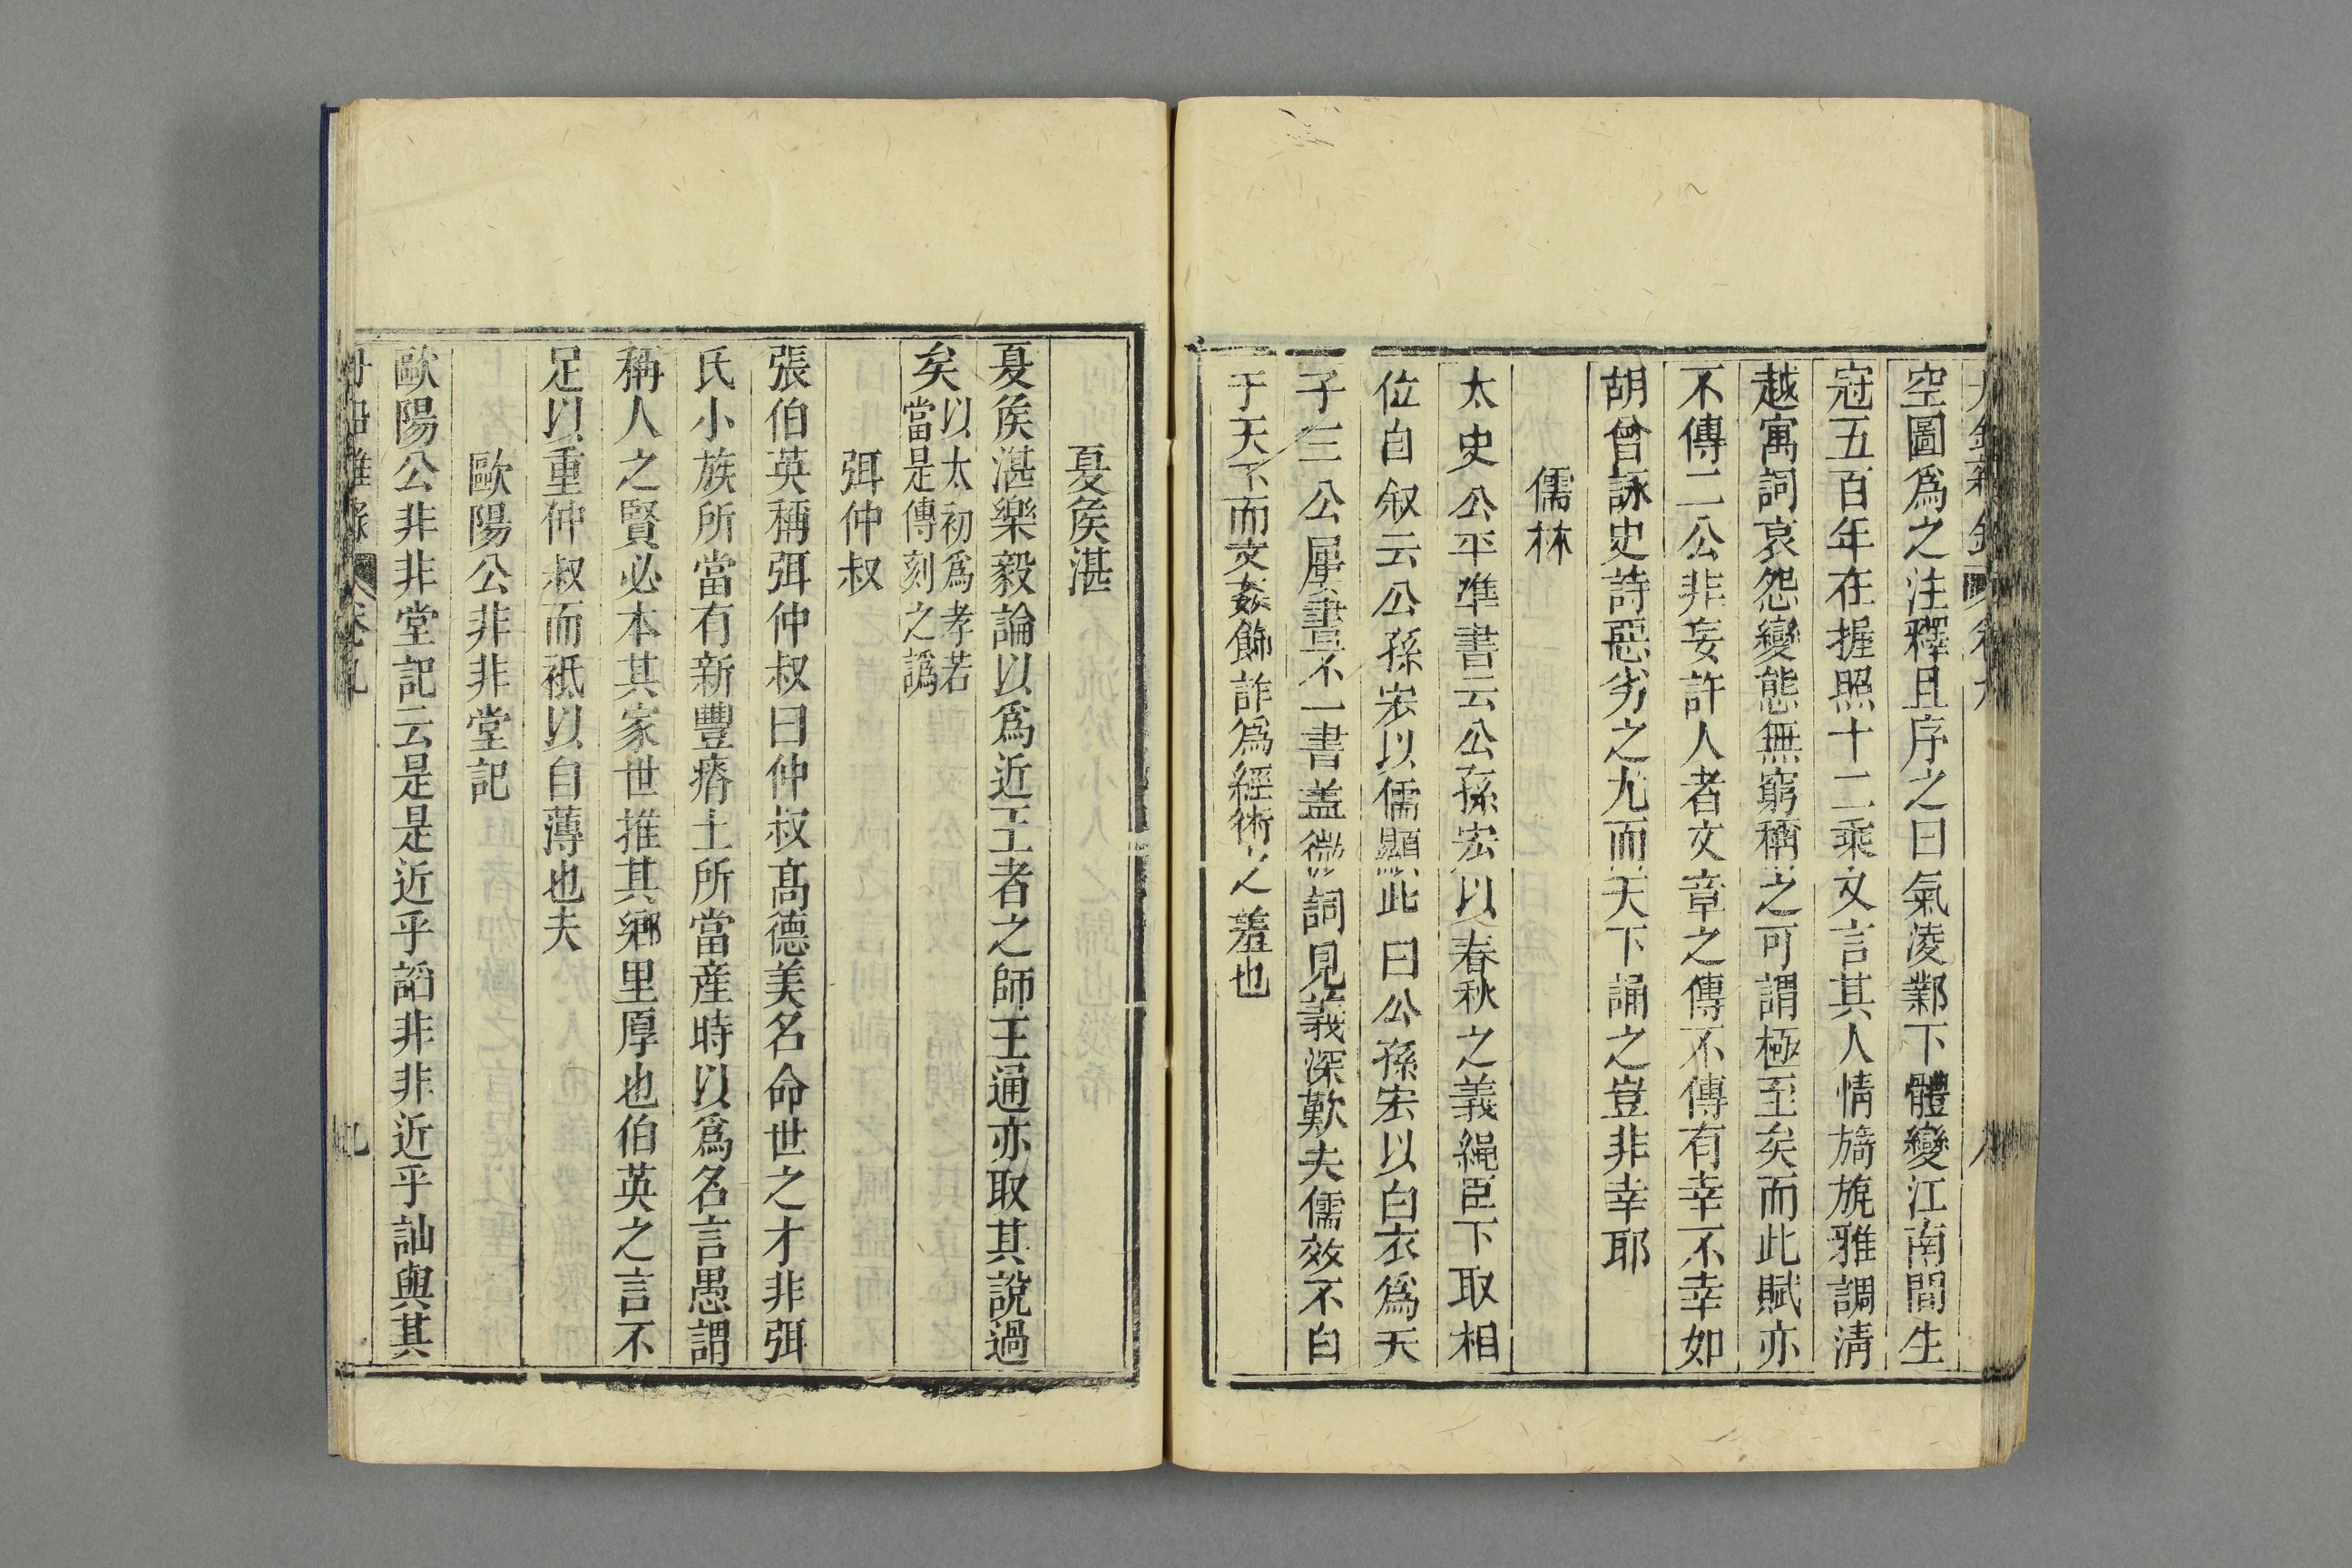 空圖爲之注釋且序之曰氣凌鄴下體變江南間生
冠五百年在握照十二乘文言其人情旖旎雅調淸
越寓詞哀怨變態無窮稱之可謂極至矣而此賦亦
不傳二公非妄許人者文章之傳不傳有幸不幸如
胡曾詠史詩惡劣之尤而天下誦之豈非幸耶
儒林
太史公平準書云公孫宏以春秋之義繩臣下取相
位自叙云公孫宏以儒顯此曰公孫宏以白衣爲天
子三公屢書不一書盖微詞見義深歎夫儒效不白
于天下而文姦飾詐爲經術之羞也
夏矦湛
夏矦湛樂毅論以爲近王者之師王通亦取其說過
矣以太初爲孝若當是傳刻之譌
弭仲叔
張伯英稱弭仲叔曰仲叔髙德美名命世之才非弭
氏小族所當有新豐瘠土所當産時以爲名言愚謂
稱人之賢必本其家世推其鄕里厚也伯英之言不
足以重仲叔而祗以自薄也夫
歐陽公非非堂記
歐陽公非非堂記云是是近乎謟非非近乎訕與其
卷九
九